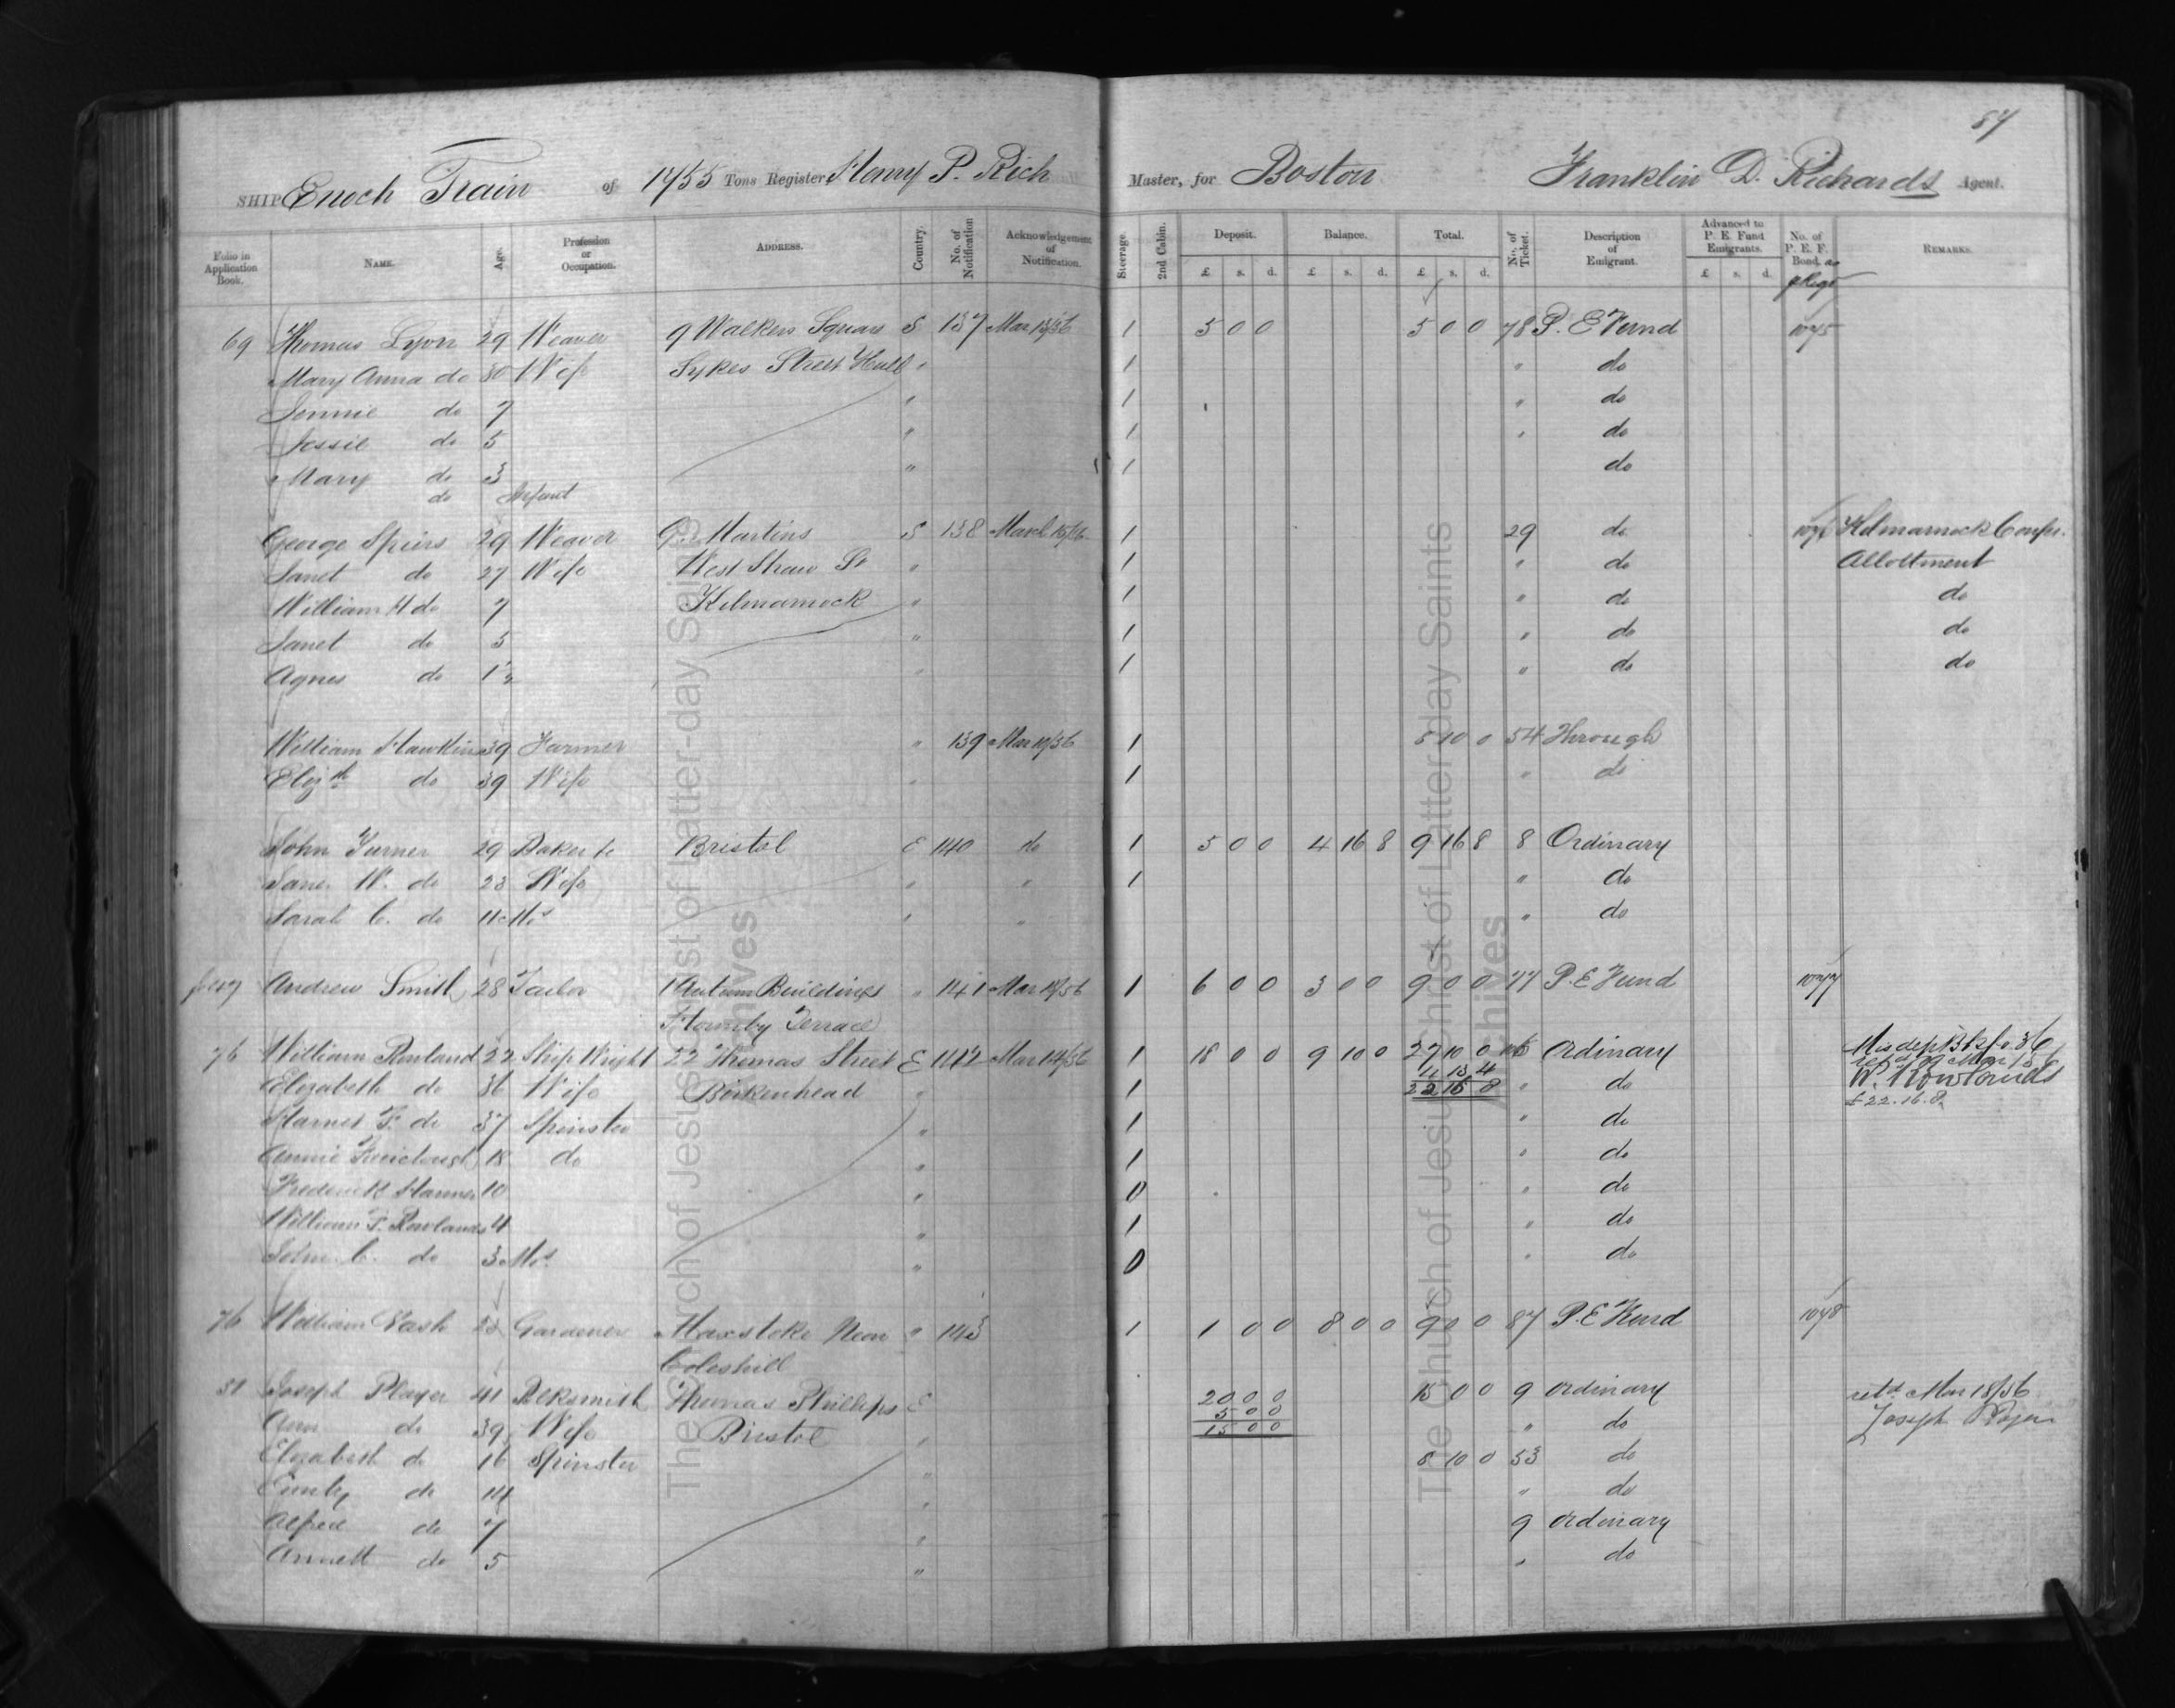 87
SHIP Enoch Train of 1455 Tons Register Henry P. Rich Master, for Boston Franklin D. Richards Agent.
Folio in Application Book. Name. Age. Profession or Occupation. Address. Country. No. of Notification Acknowledgement of Notification. Steerage. 2nd Cabin. Deposit. Balance. Total. No. of Ticket. Description of Emigrant. Advanced to P. E. Fund Emigrants. No. of P. E. F. Bond. Remarks.
£ s. d. £ s. d. £ s. d. £ s. d.
69 Thomas Lyon 29 Weaver 9 Walkers Square S 137 Mar 13/56 1 5 0 0 5 0 0 78 P. E Fund 1075
Mary Anna do 30 Wife Sykes Street Hull " 1 " do
Jennie do 7 " 1 " do
Jessie do 5 " 1 " do
Mary do 3 " 1 do
do Infant
George Spiers 29 Weaver Martins S 138 March 15/56 1 29 do 1076 Kilmarnock Confer.
Janet do 27 Wife West Shaw St " 1 " do Allottment
William H do 7 Kilmarnock " 1 " do do
Janet do 5 " 1 " do do
Agnes do 1 " 1 " do do
William Hawkins 39 Farmer " 139 Mar 14/56 1 8 10 0 54 Through
Eliz th do 39 Wife " 1 " do
John Turner 29 Baker &c Bristol E 140 do 1 5 0 0 4 16 8 9 16 8 8 Ordinary
Jane W. do 23 Wife " " 1 " do
Sarah C. do 11 Mos " " " do
Andrew Smith 28 Tailor 1 Autum Buildings " 141 Mar 14/56 1 6 0 0 3 0 0 9 0 0 77 P. E Fund 1077
Hornby Terrace
76 William Rowland 22 Ship Wright 22 Thomas Street E 142 Mar 14/56 1 18 0 0 9 10 0 27 10 0 Ordinary
4 13 4
Elizabeth do 36 Wife Birkenhead " 1 22 16 8 " do W. Rowlands
£22.16.8
Harmer F. do 37 Spinster " 1 " do
Annie 18 do " 1 " do
Frederick Harmer 10 " 0 " do
William F. Rowlands 4 " 1 " do
John C. do 3 Mos. " 0 " do
76 William Nash Gardener Maxstoke Near " 143 1 1 0 0 8 0 0 9 0 0 87 P. E Fund 1078
Coleshill
31 Joseph Player 41 Blksmith Thomas Phillips E 20 0 0 15 0 0 9 Ordinary retd Mar 18/56
5 0 0
Ann do 39 Wife Bristol " 15 0 0 " do Joseph Player
Elizabeth do 16 Spinster " 8 10 0 53 do
Emily do 14 " " do
Alfred do 7 " 9 Ordinary
Annett do 5 " " do
The Church of Jesus Christ of Latter-day Saints Archives
The Church of Jesus Christ of Latter-day Saints Archives